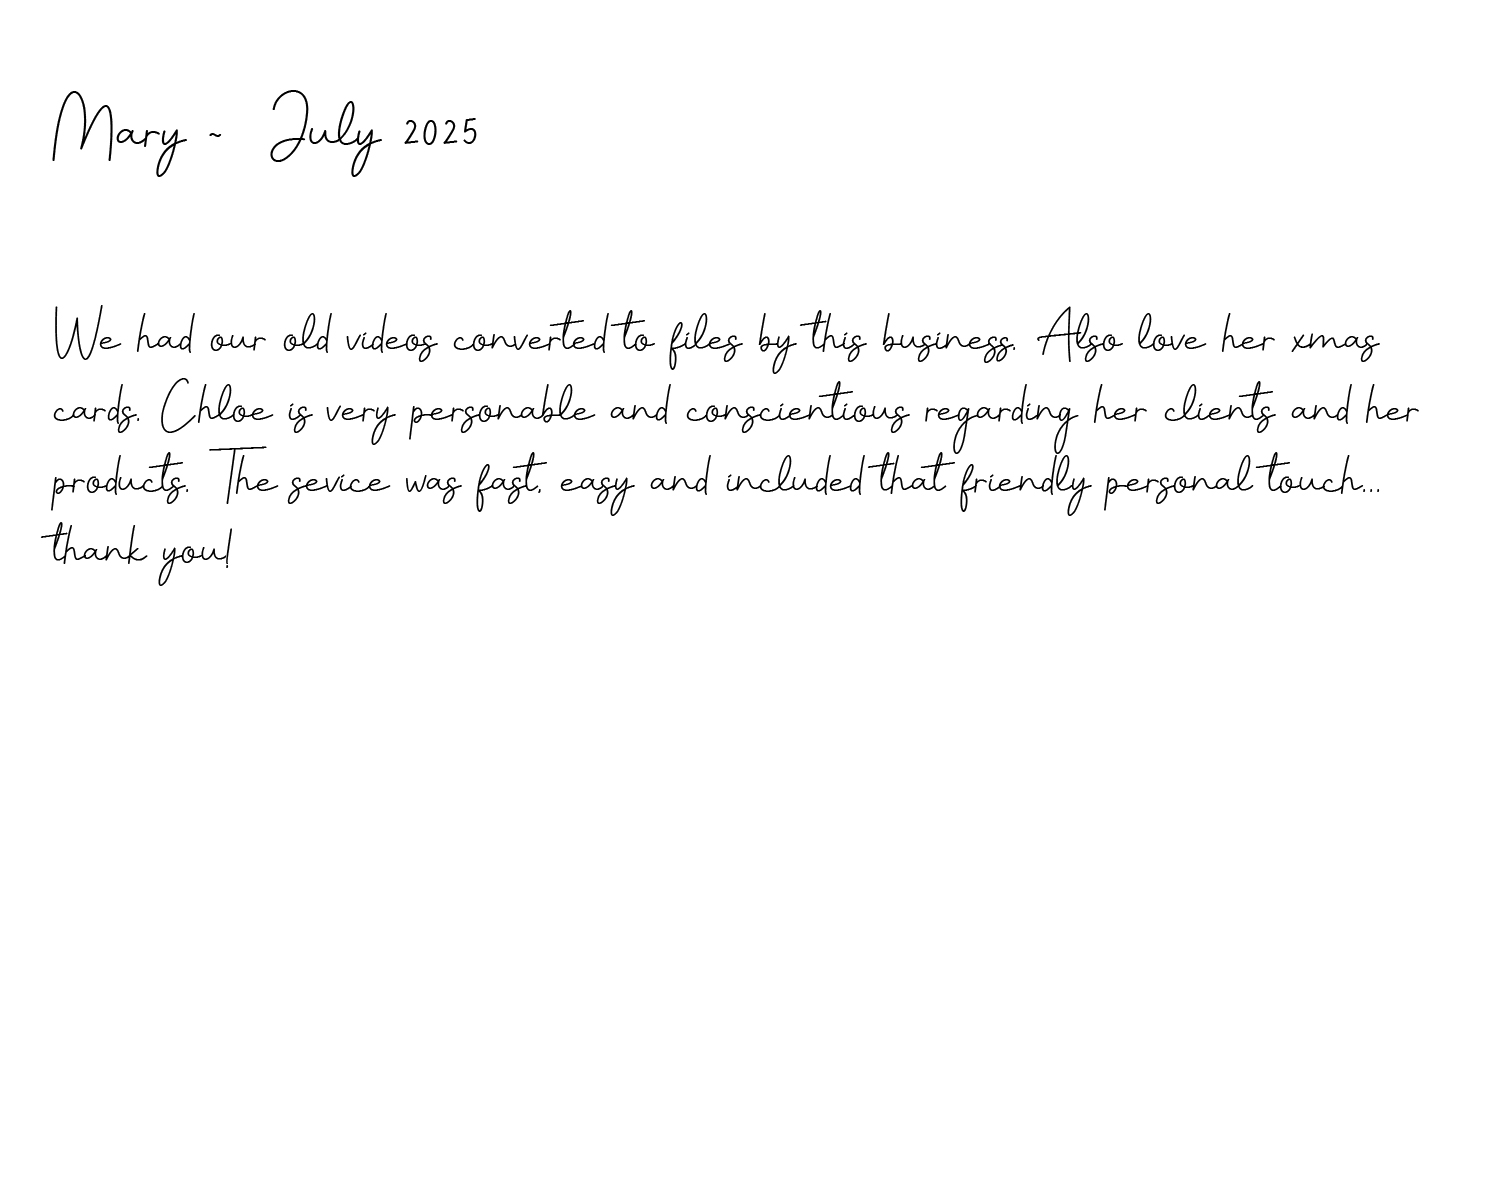 Mary ~ July 2025
We had our old videos converted to files by this business. Also love her xmas
cards. Chloe is very personable and conscientious regarding her clients and her
products. The sevice was fast, easy and included that friendly personal touch...
thank you!